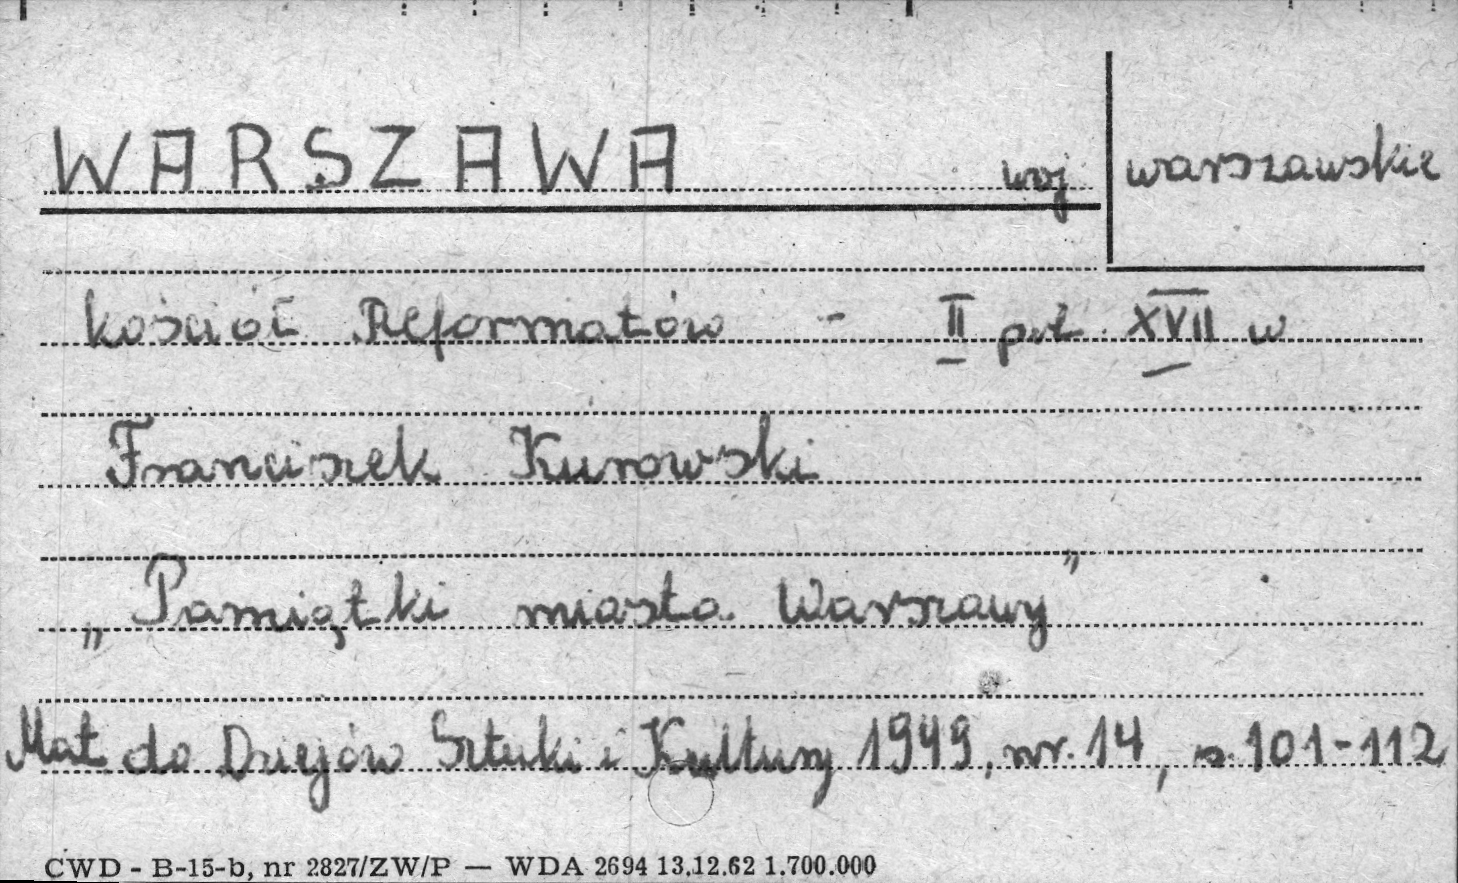 WARSZAWA woj warszawskie
kościół Reformatów - II poł. XVII w
Franciszek Kurowski
„Pamiątki miasta Warszawy”
Mat do Dziejów Sztuki i Kultury 1949, nr. 14, s. 101-112
CWD - B-15-b, nr 2827/ZW/P — WDA 2694 13.12.62 1.700.000